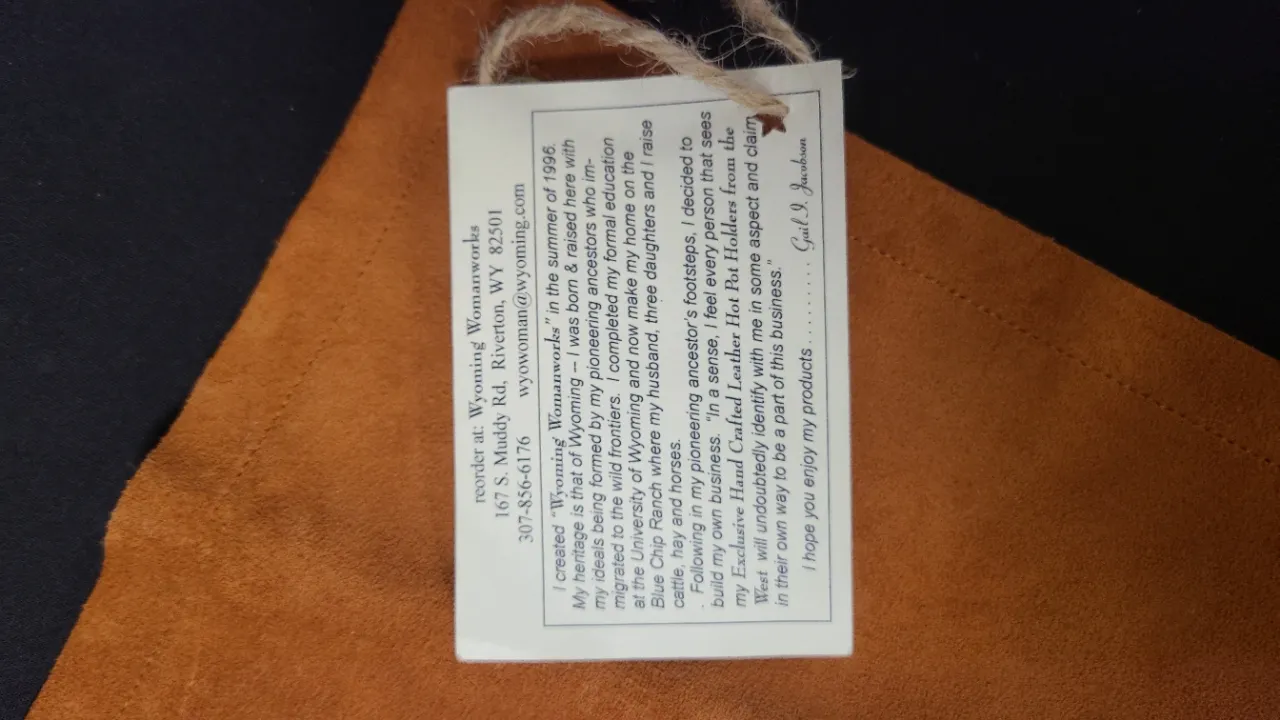 reorder at: Wyoming Womanworks
167 S. Muddy Rd, Riverton, WY 82501
307-856-6176 wyowoman@wyoming.com
I created "Wyoming Womanworks" in the summer of 1996.
My heritage is that of Wyoming -- I was born & raised here with
my ideals being formed by my pioneering ancestors who im-
migrated to the wild frontiers. I completed my formal education
at the University of Wyoming and now make my home on the
Blue Chip Ranch where my husband, three daughters and I raise
cattle, hay and horses.
Following in my pioneering ancestor's footsteps, I decided to
build my own business. "In a sense, I feel every person that sees
my Exclusive Hand Crafted Leather Hot Pot Holders from the
West will undoubtedly identify with me in some aspect and claim
in their own way to be a part of this business."
I hope you enjoy my products . . . . . . . . . Gail I. Jacobson